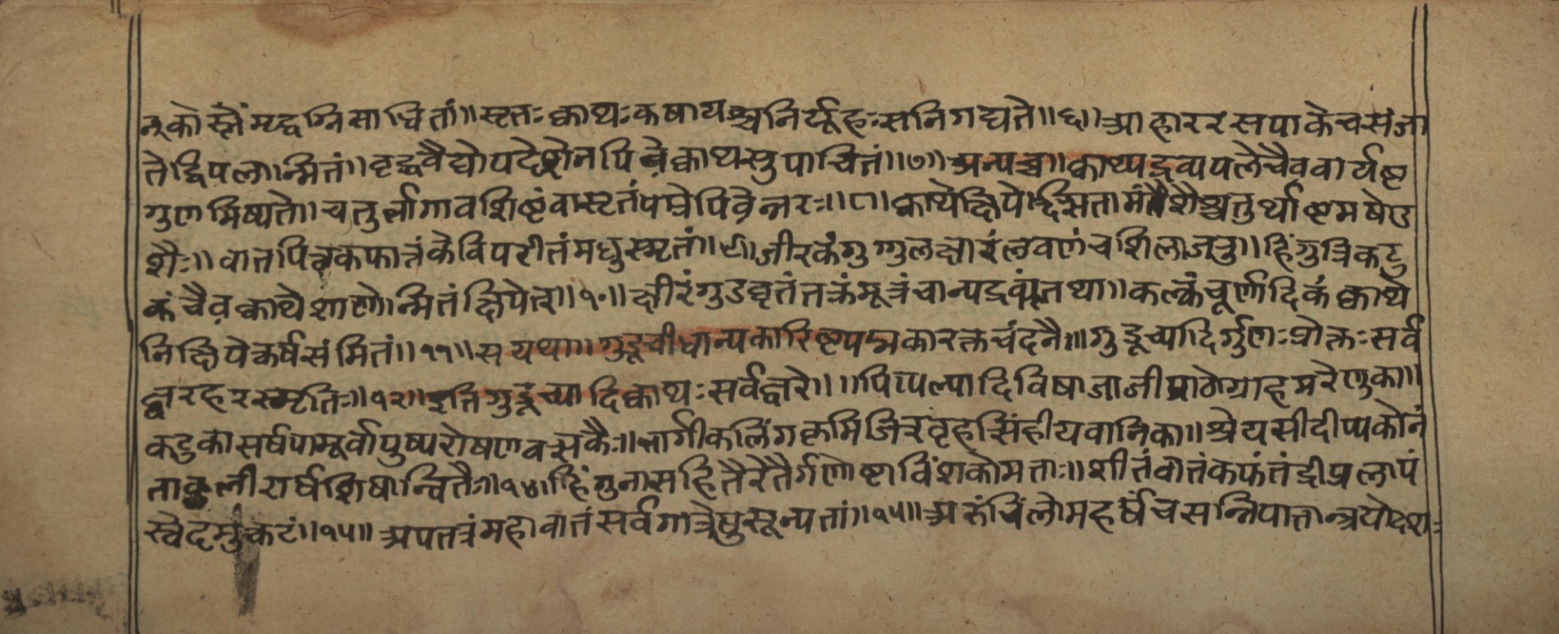 न्कोस्नैंमृद्वग्निसाधितां॥सृतःक्वाथःकषायश्चनिर्यूहःसनिगद्यते॥६॥आहाररसपाकेचसंजा
तेद्विपलान्मितं॥वृद्धवैद्योपदेशेनपिबेक्वाथसुपाचितं॥७॥अन्यच्च॥क्वाथ्यद्रव्यपलेचैववार्यष्ट
गुणमिष्यते॥चतुर्भागावशिष्टंवासृतंपश्चेपिवेन्नरः॥८॥क्वाथेक्षिपेद्सितामंशैश्चतुर्थाष्टमषोड
शैः॥वातपित्तकफातंकेविपरीतंमधुस्मृतं॥९॥जीरकंगुग्गुलक्षारंलवणंचशिलाजतु॥हिंगुत्रिकटु
कंचैवक्वाथेशाणोन्मितंक्षिपेत्॥१०॥क्षीरंगुडघृतंतक्रंमूत्रंचान्यद्रवंतथा॥कल्कंचूर्णादिकंक्वाथे
निक्षिपेकर्षसंमितं॥११॥सयथा॥गुडूचीधान्यकारिष्टपद्मकारक्तचंदनैः॥गुडूच्यादिर्गुणःप्रोक्तःसर्व
ज्वरहरस्मृतिः॥१२॥इतिगुडूच्यादिक्वाथःसर्वज्वरे॥॥पिप्पल्यादिविषाजाजीपाठेग्राहमरेणुका॥
कटुकासर्षपामूर्वापुष्परोषणवत्सकैः॥भार्गीकलिंगक्रमिजिरवृहसिंहीयवानिका॥श्रेयसीदीप्यकोनं
तावलीरार्षशिषान्वितैः॥१४॥हिंगुनासहितैरेतैर्गणोष्टाविंशकोमताः॥शीतंवातंकफंतंद्रीप्रलापं
स्वेदमुत्कटं॥१५॥अपतत्रंमहावातंसर्वगात्रेषुसून्यतां॥१५॥अरुचिंलोमहर्षंचसन्निपातान्त्रयोदश